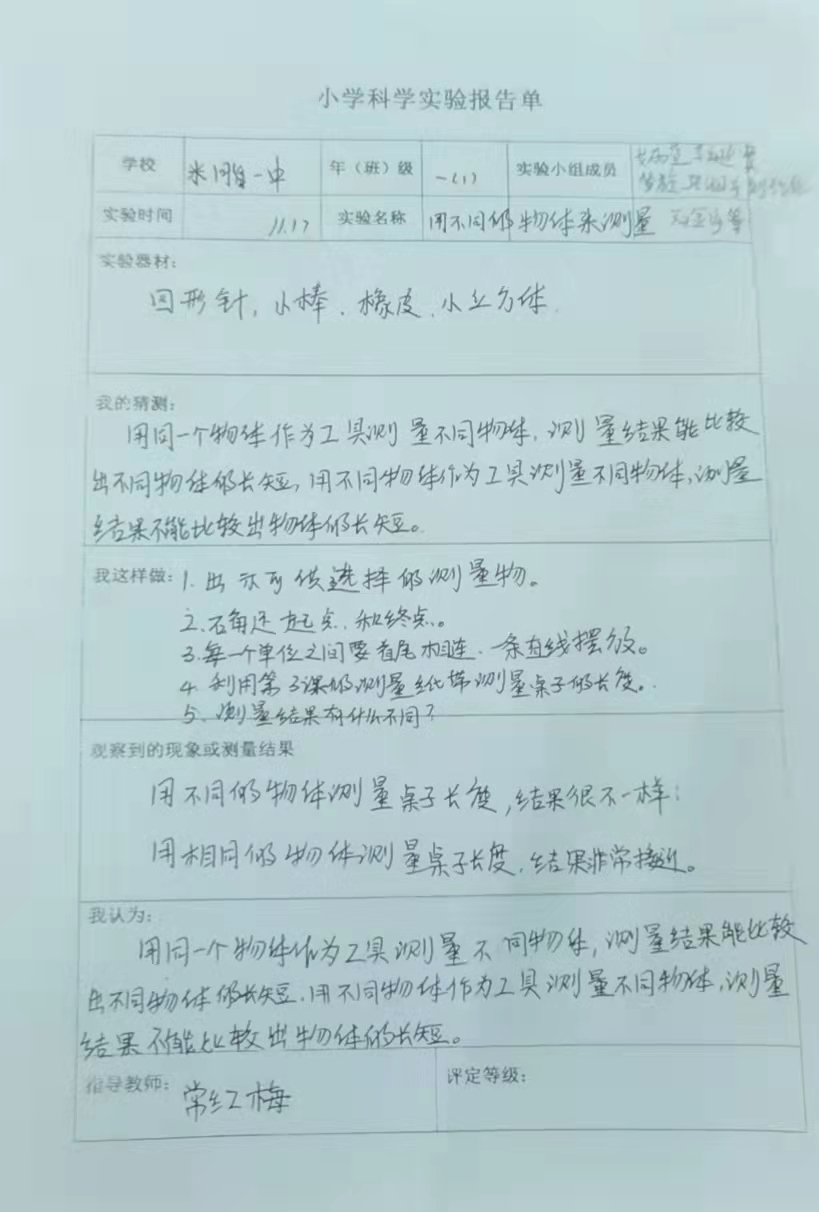 小学科学实验报告单
学校 米脂一中 年（班）级 一（1） 实验小组成员
实验时间 11.17 实验名称 用不同的物体来测量
实验器材：
回形针、小棒、橡皮、小立方体
我的猜测：
用同一个物体作为工具测量不同物体，测量结果能比较
出不同物体的长短，用不同物体作为工具测量不同物体，测量
结果不能比较出物体的长短。
我这样做：1.出示可供选择的测量物。
2.石角还起点、和终点。
3.每一个单位之间要首尾相连、一条直线摆放。
4.利用第3课的测量纸带测量桌子的长度。
5.测量结果有什么不同？
观察到的现象或测量结果
用不同的物体测量桌子长度，结果很不一样；
用相同的物体测量桌子长度，结果非常接近。
我认为：
用同一个物体作为工具测量不同物体，测量结果能比较
出不同物体的长短，用不同物体作为工具测量不同物体，测量
结果不能比较出物体的长短。
指导教师：常红梅 评定等级：